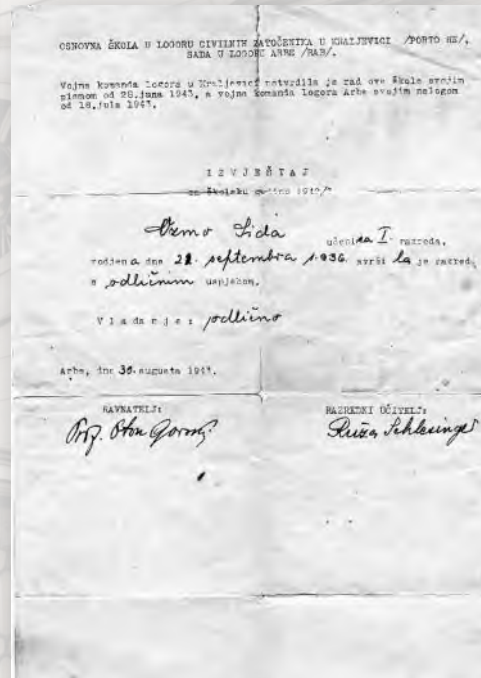 OSNOVNA ŠKOLA U LOGORU CIVILNIH ZATOČENIKA U KRALJEVICI /PORTO RE/,
SADA U LOGORU ARBE /RAB/.
Vojna komanda logora u Kraljevici potvrdila je rad ove škole svojim
pismom od 28. juna 1943, a vojna komanda logora Arbe svojim nalogom
od 18. jula 1943.
IZVJEŠTAJ
za školsku godinu 1942/3
Ozmo Sida
učenica I. razreda,
rodjena dne 22. septembra 1936. svršila je razred
s odličnim uspjehom.
Vladanje: odlično
Arbe, dne 30. augusta 1943.
RAVNATELJ: RAZREDNI UČITELJ:
Prof. Oton Ruža Schlesinger